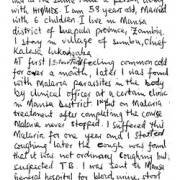 with HIV/AIDS. I am 53 year old, Married
with 6 children I live in Mansa
district of Luapula province, Zambia.
I stay in village of Chief
Kalasa Lukangaba
At first I feeling common cold
for over a month, later I was found
with Malaria parasites in the body
by clinical officer at a certain clinic
in Mansa district put on Malaria
treatment after completing the course
Malaria never stopped I suffered
Malaria for one year and I started
coughing later the cough was found
that it was not ordinary coughing but
suspected TB. I was sent to Mansa
General hospital for blood, urine, stool